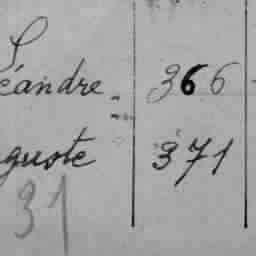 Léandre 366
guste 371
31